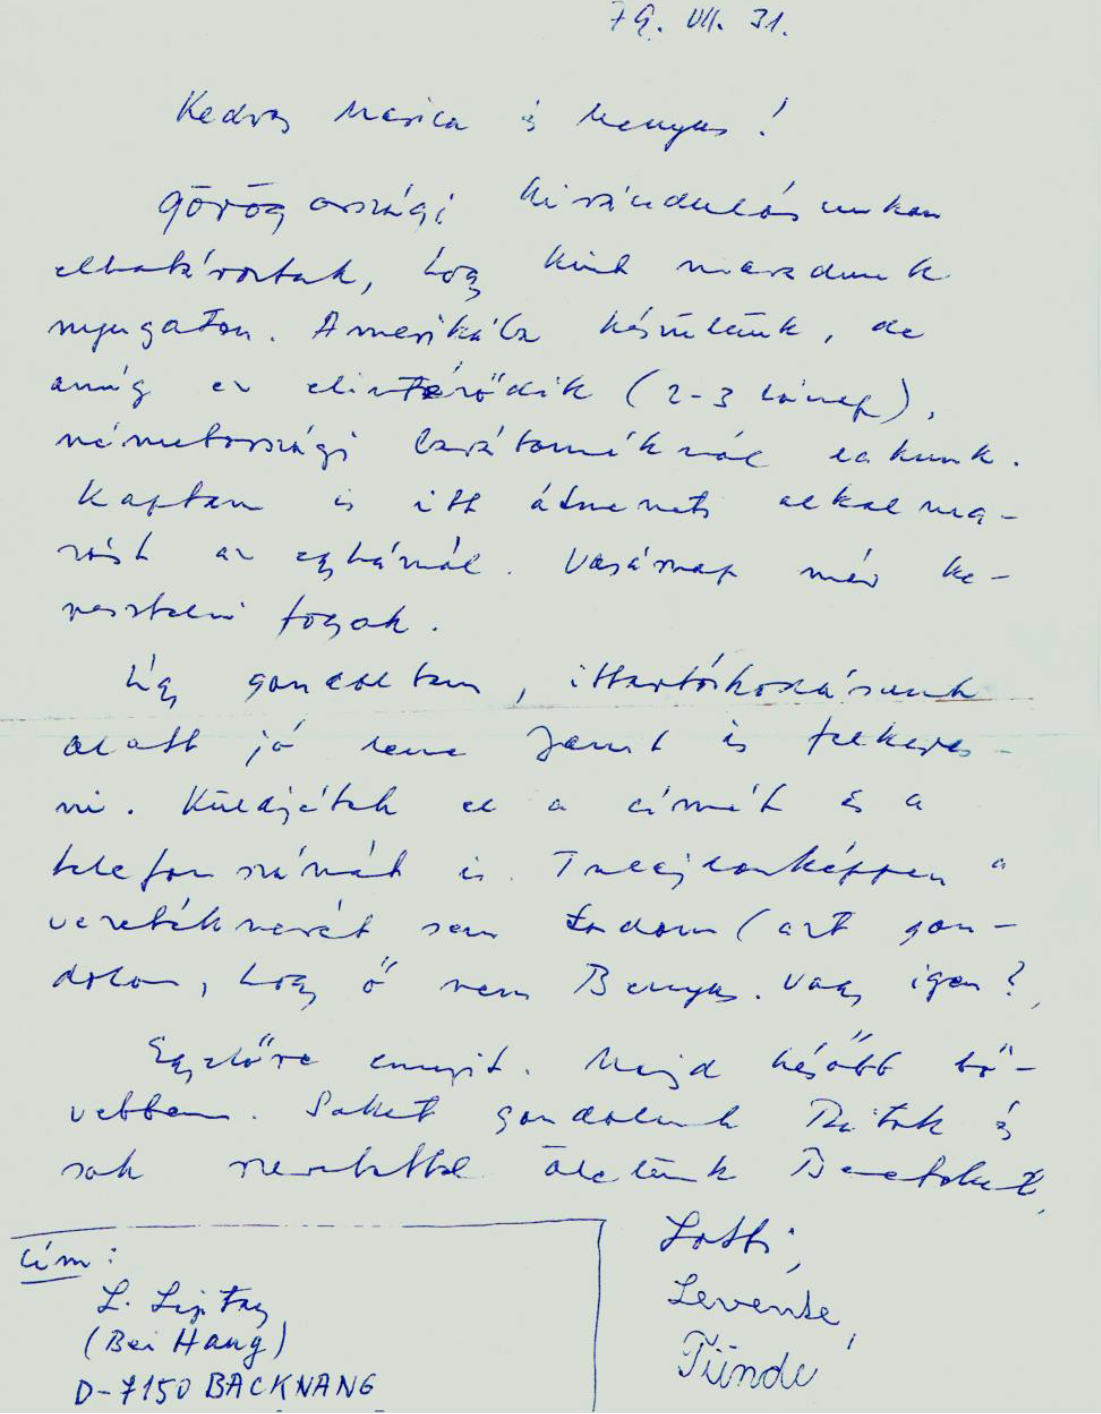 79. VII. 31.
Kedves Marica és Menyus!
Görögországi kirándulásunkon
elhatároztuk, hogy kint maradunk
nyugaton. Amerikába készülünk, de
amíg ez elintéződik (2-3 hónap),
németországi barátaméknál lakunk.
Kaptam is itt átmeneti alkalma-
zást az egyháznál. Vasárnap már ke-
resztelni fogok.
Úgy gondoltam, itttartózkodásunk
alatt jó lenne is felkeres-
ni. Küldjétek el a címét és a
telefonszámát is. Tulajdonképpen a
vezetéknevét sem tudom (azt gon-
dolom, hogy ő nem Benyus. Vagy igen?
Egyelőre ennyit. Majd később bő-
vebben. Sokat gondolunk Rátok és
sok szeretettel ölelünk Benneteket,
Lotti,
Levente,
Tünde
Cím:
L.
(Bei Haug)
D-7150 BACKNANG